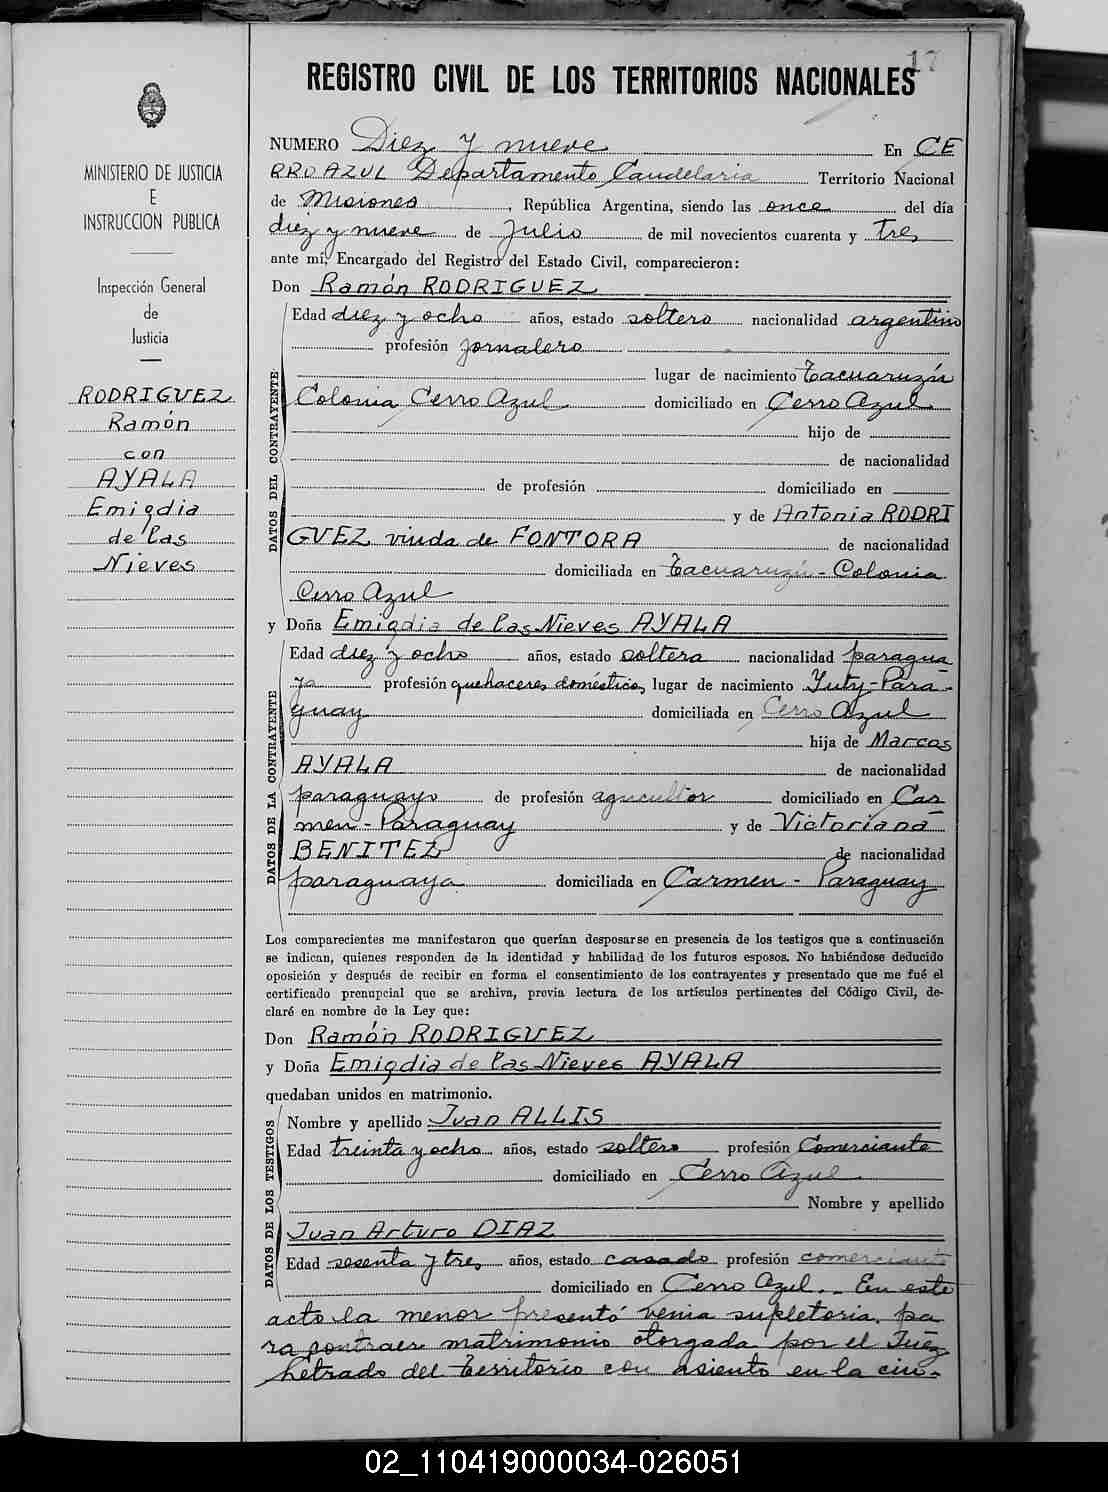 17
REGISTRO CIVIL DE LOS TERRITORIOS NACIONALES
MINISTERIO DE JUSTICIA
E
INSTRUCCION PUBLICA
Inspección General
de
Justicia
RODRIGUEZ
Ramón
con
AYALA
Emigdia
de las
Nieves
NUMERO Diez y nueve En CE
RRO AZUL Departamento Candelaria Territorio Nacional
de Misiones, República Argentina, siendo las once del día
diez y nueve de Julio de mil novecientos cuarenta y tres
ante mí, Encargado del Registro del Estado Civil, comparecieron:
Don Ramón RODRIGUEZ
DATOS DEL CONTRAYENTE
Edad diez y ocho años, estado soltero nacionalidad argentino
profesión jornalero
lugar de nacimiento Tacuaruzú
Colonia Cerro Azul domiciliado en Cerro Azul
hijo de
de nacionalidad
de profesión domiciliado en
y de Antonia RODRI
GUEZ viuda de FONTORA de nacionalidad
domiciliada en Tacuaruzú - Colonia
Cerro Azul
y Doña Emigdia de las Nieves AYALA
DATOS DE LA CONTRAYENTE
Edad diez y ocho años, estado soltera nacionalidad paragua
ya profesión quehaceres domésticos lugar de nacimiento Yuty-Para-
guay domiciliada en Cerro Azul
hija de Marcos
AYALA de nacionalidad
paraguayo de profesión agricultor domiciliado en Car
men - Paraguay y de Victoriana
BENITEZ de nacionalidad
paraguaya domiciliada en Carmen - Paraguay
Los comparecientes me manifestaron que querían desposarse en presencia de los testigos que a continuación
se indican, quienes responden de la identidad y habilidad de los futuros esposos. No habiéndose deducido
oposición y después de recibir en forma el consentimiento de los contrayentes y presentado que me fué el
certificado prenupcial que se archiva, previa lectura de los artículos pertinentes del Código Civil, de-
claré en nombre de la Ley que:
Don Ramón RODRIGUEZ
y Doña Emigdia de las Nieves AYALA
quedaban unidos en matrimonio.
DATOS DE LOS TESTIGOS
Nombre y apellido Juan ALLIS
Edad treinta y ocho años, estado soltero profesión Comerciante
domiciliado en Cerro Azul
Nombre y apellido
Juan Arturo DIAZ
Edad sesenta y tres años, estado casado profesión comerciante
domiciliado en Cerro Azul. - En este
acto la menor presentó venia supletoria, pa
ra contraer matrimonio otorgada por el Juez
Letrado del Territorio con asiento en la ciu-
02_110419000034-026051